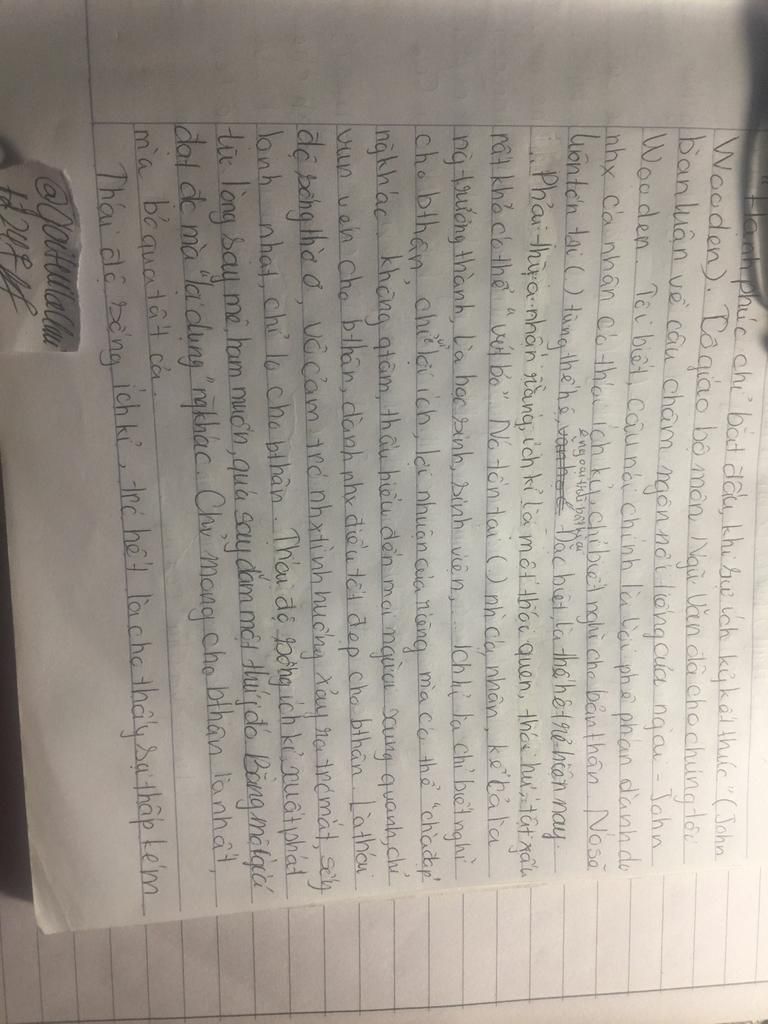 "Hạnh phúc chỉ bắt đầu, khi sự ích kỷ kết thúc" (John
Wooden). Cô giáo bộ môn Ngữ Văn đã cho chúng tôi
bàn luận về câu châm ngôn nổi tiếng của ngài - John
Wooden. Tôi biết, câu nói chính là lời phê phán dành
nhx cá nhân có thói ích kỷ, chỉ biết nghĩ cho bản thân. Nó sẽ
luôn tồn tại ( ) từng thế hệ, Đặc biệt, là thế hệ trẻ hiện nay
.. Phải thừa nhận rằng, ích kỉ là một thói quen, thói hư, tật xấu
rất khó có thể "vứt bỏ". Nó tồn tại ( ) nh cá nhân, kể cả là
ng trưởng thành, là học sinh, sinh viên,... Ích kỉ là chỉ biết nghĩ
cho bthân, chỉ vì lợi ích, lợi nhuận của riêng mà có thể "chà đạp"
ng khác, không qtâm, thấu hiểu đến mọi người xung quanh, chỉ
vun vén cho bthân, dành nhx điều tốt đẹp cho bthân. Là thái
độ sống thờ ơ, vô cảm trc nhx tình huống xảy ra trc mắt, sống
lạnh nhạt, chỉ lo cho bthân. Thái độ sống ích kỉ xuất phát
từ lòng say mê, ham muốn, quá say đắm một thứ j đó. Bằng mọi giá
đạt đc mà "lợi dụng" ng khác. Chỉ mong cho bthân là nhất,
mà bỏ qua tất cả.
Thái độ sống ích kỉ, trc hết là cho thấy sự thấp kém